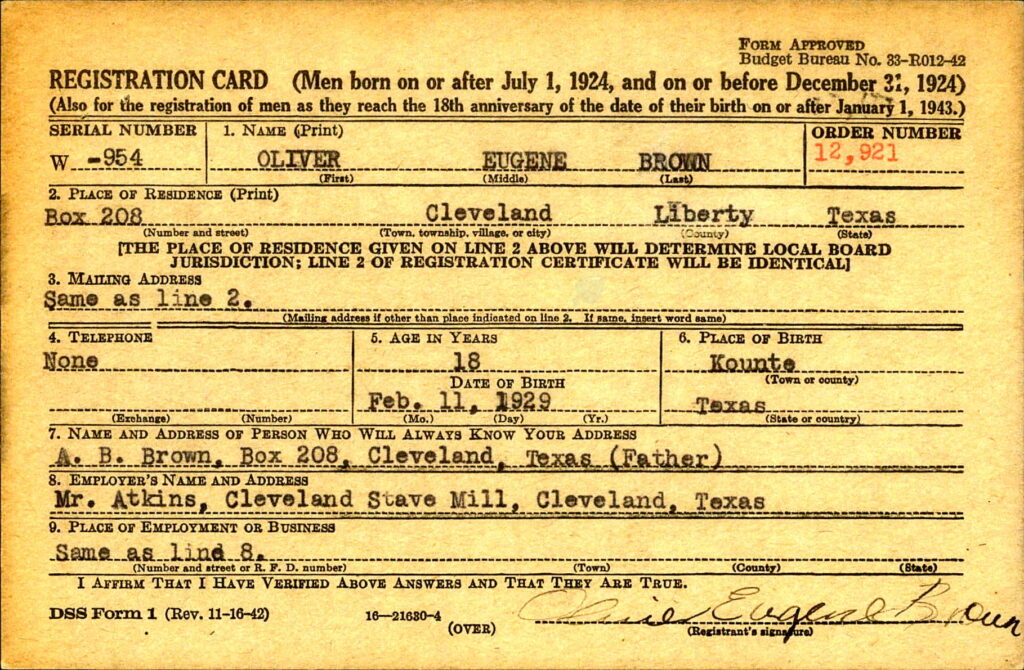 FORM APPROVED
Budget Bureau No. 33-R012-42
REGISTRATION CARD (Men born on or after July 1, 1924, and on or before December 31, 1924)
(Also for the registration of men as they reach the 18th anniversary of the date of their birth on or after January 1, 1943.)
SERIAL NUMBER 1. NAME (Print) ORDER NUMBER
W -954 OLIVER EUGENE BROWN 12,921
(First) (Middle) (Last)
2. PLACE OF RESIDENCE (Print)
Box 208 Cleveland Liberty Texas
(Number and street) (Town, township, village, or city) (County) (State)
[THE PLACE OF RESIDENCE GIVEN ON LINE 2 ABOVE WILL DETERMINE LOCAL BOARD
JURISDICTION; LINE 2 OF REGISTRATION CERTIFICATE WILL BE IDENTICAL]
3. MAILING ADDRESS
Same as line 2.
(Mailing address if other than place indicated on line 2. If same, insert word same)
4. TELEPHONE 5. AGE IN YEARS 6. PLACE OF BIRTH
None 18 Kounte
DATE OF BIRTH (Town or county)
Feb. 11, 1929 Texas
(Exchange) (Number) (Mo.) (Day) (Yr.) (State or country)
7. NAME AND ADDRESS OF PERSON WHO WILL ALWAYS KNOW YOUR ADDRESS
A. B. Brown, Box 208, Cleveland, Texas (Father)
8. EMPLOYER'S NAME AND ADDRESS
Mr. Atkins, Cleveland Stave Mill, Cleveland, Texas
9. PLACE OF EMPLOYMENT OR BUSINESS
Same as lind 8.
(Number and street or R. F. D. number) (Town) (County) (State)
I AFFIRM THAT I HAVE VERIFIED ABOVE ANSWERS AND THAT THEY ARE TRUE.
DSS Form 1 (Rev. 11-16-42) 16—21630-4 Eugene Brown
(OVER) (Registrant's signature)